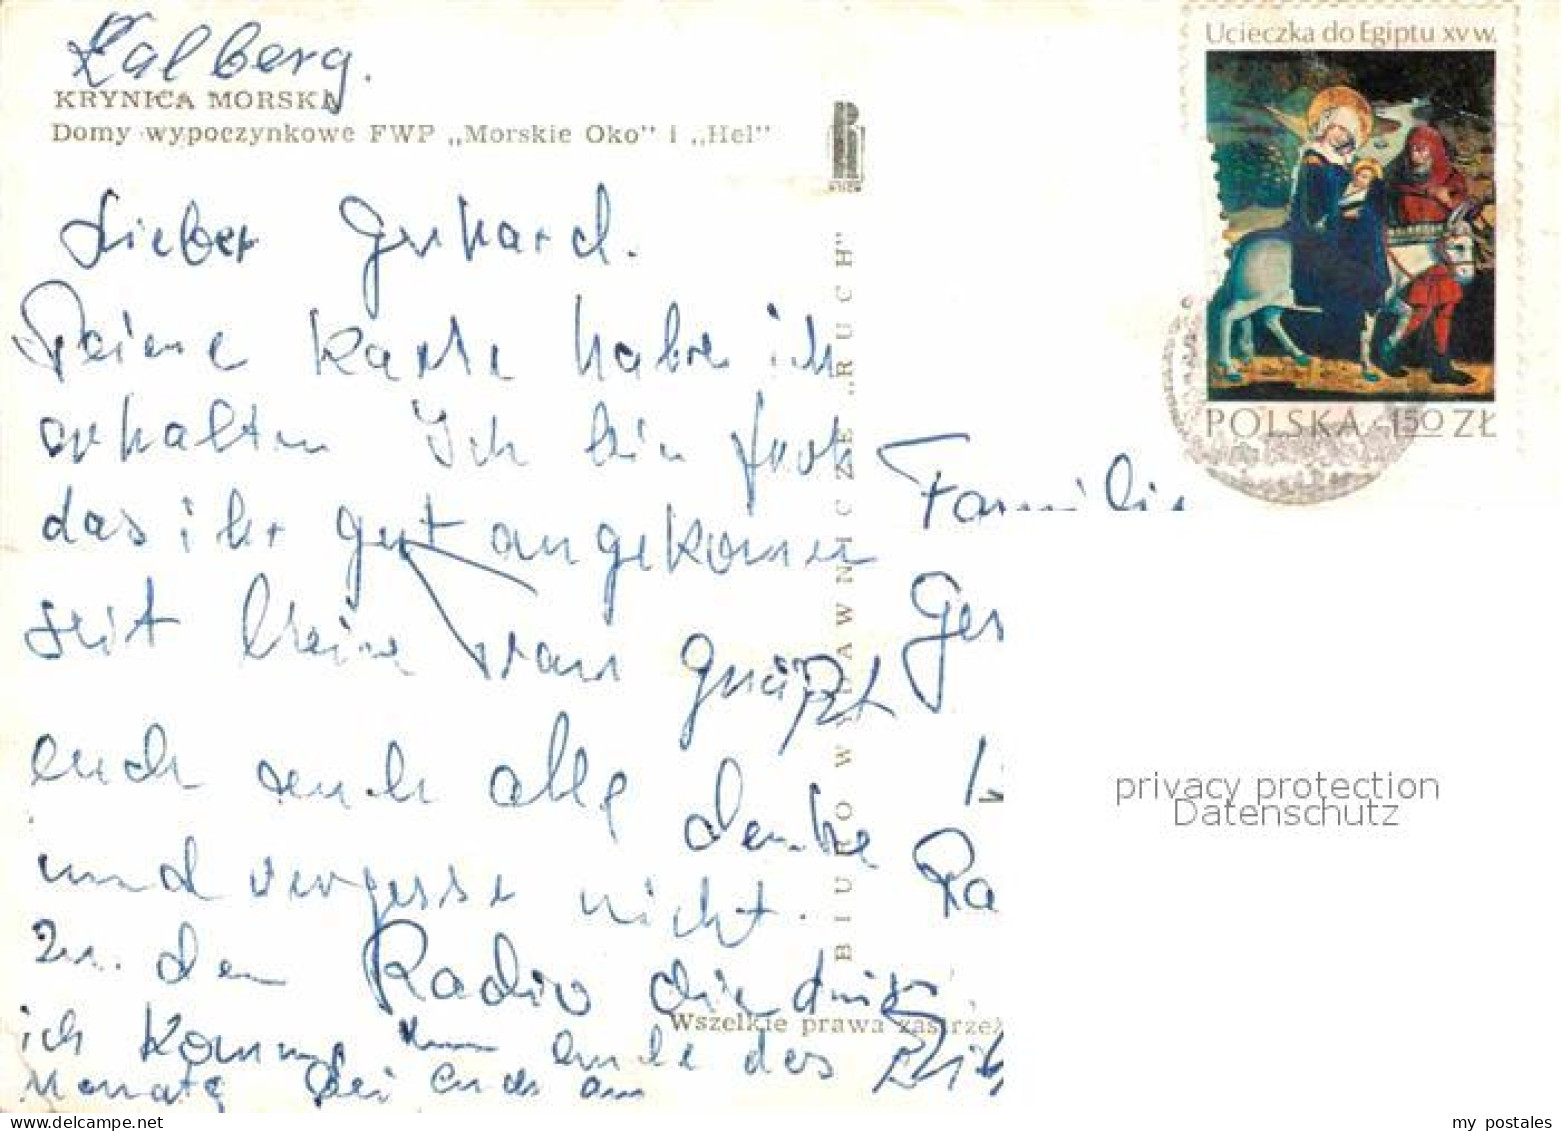 Kalberg.
KRYNICA MORSKA
Domy wypoczynkowe FWP „Morskie Oko” i „Hel”
Lieber Gerhard.
Deine Karte habe ich
erhalten Ich bin froh
das ihr gut angekomen
seit
euch auch alle denke
und vergesse nicht.
zu. den Radio die
ich komme ende des
Monats bei euch an
BIURO WYDAWNICZE „RUCH”
RUCH
Wszelkie prawa zastrzeż
Ucieczka do Egiptu XV w.
POLSKA 1,50 ZŁ
Familie
Ges
Ra
privacy protection
Datenschutz
my postales